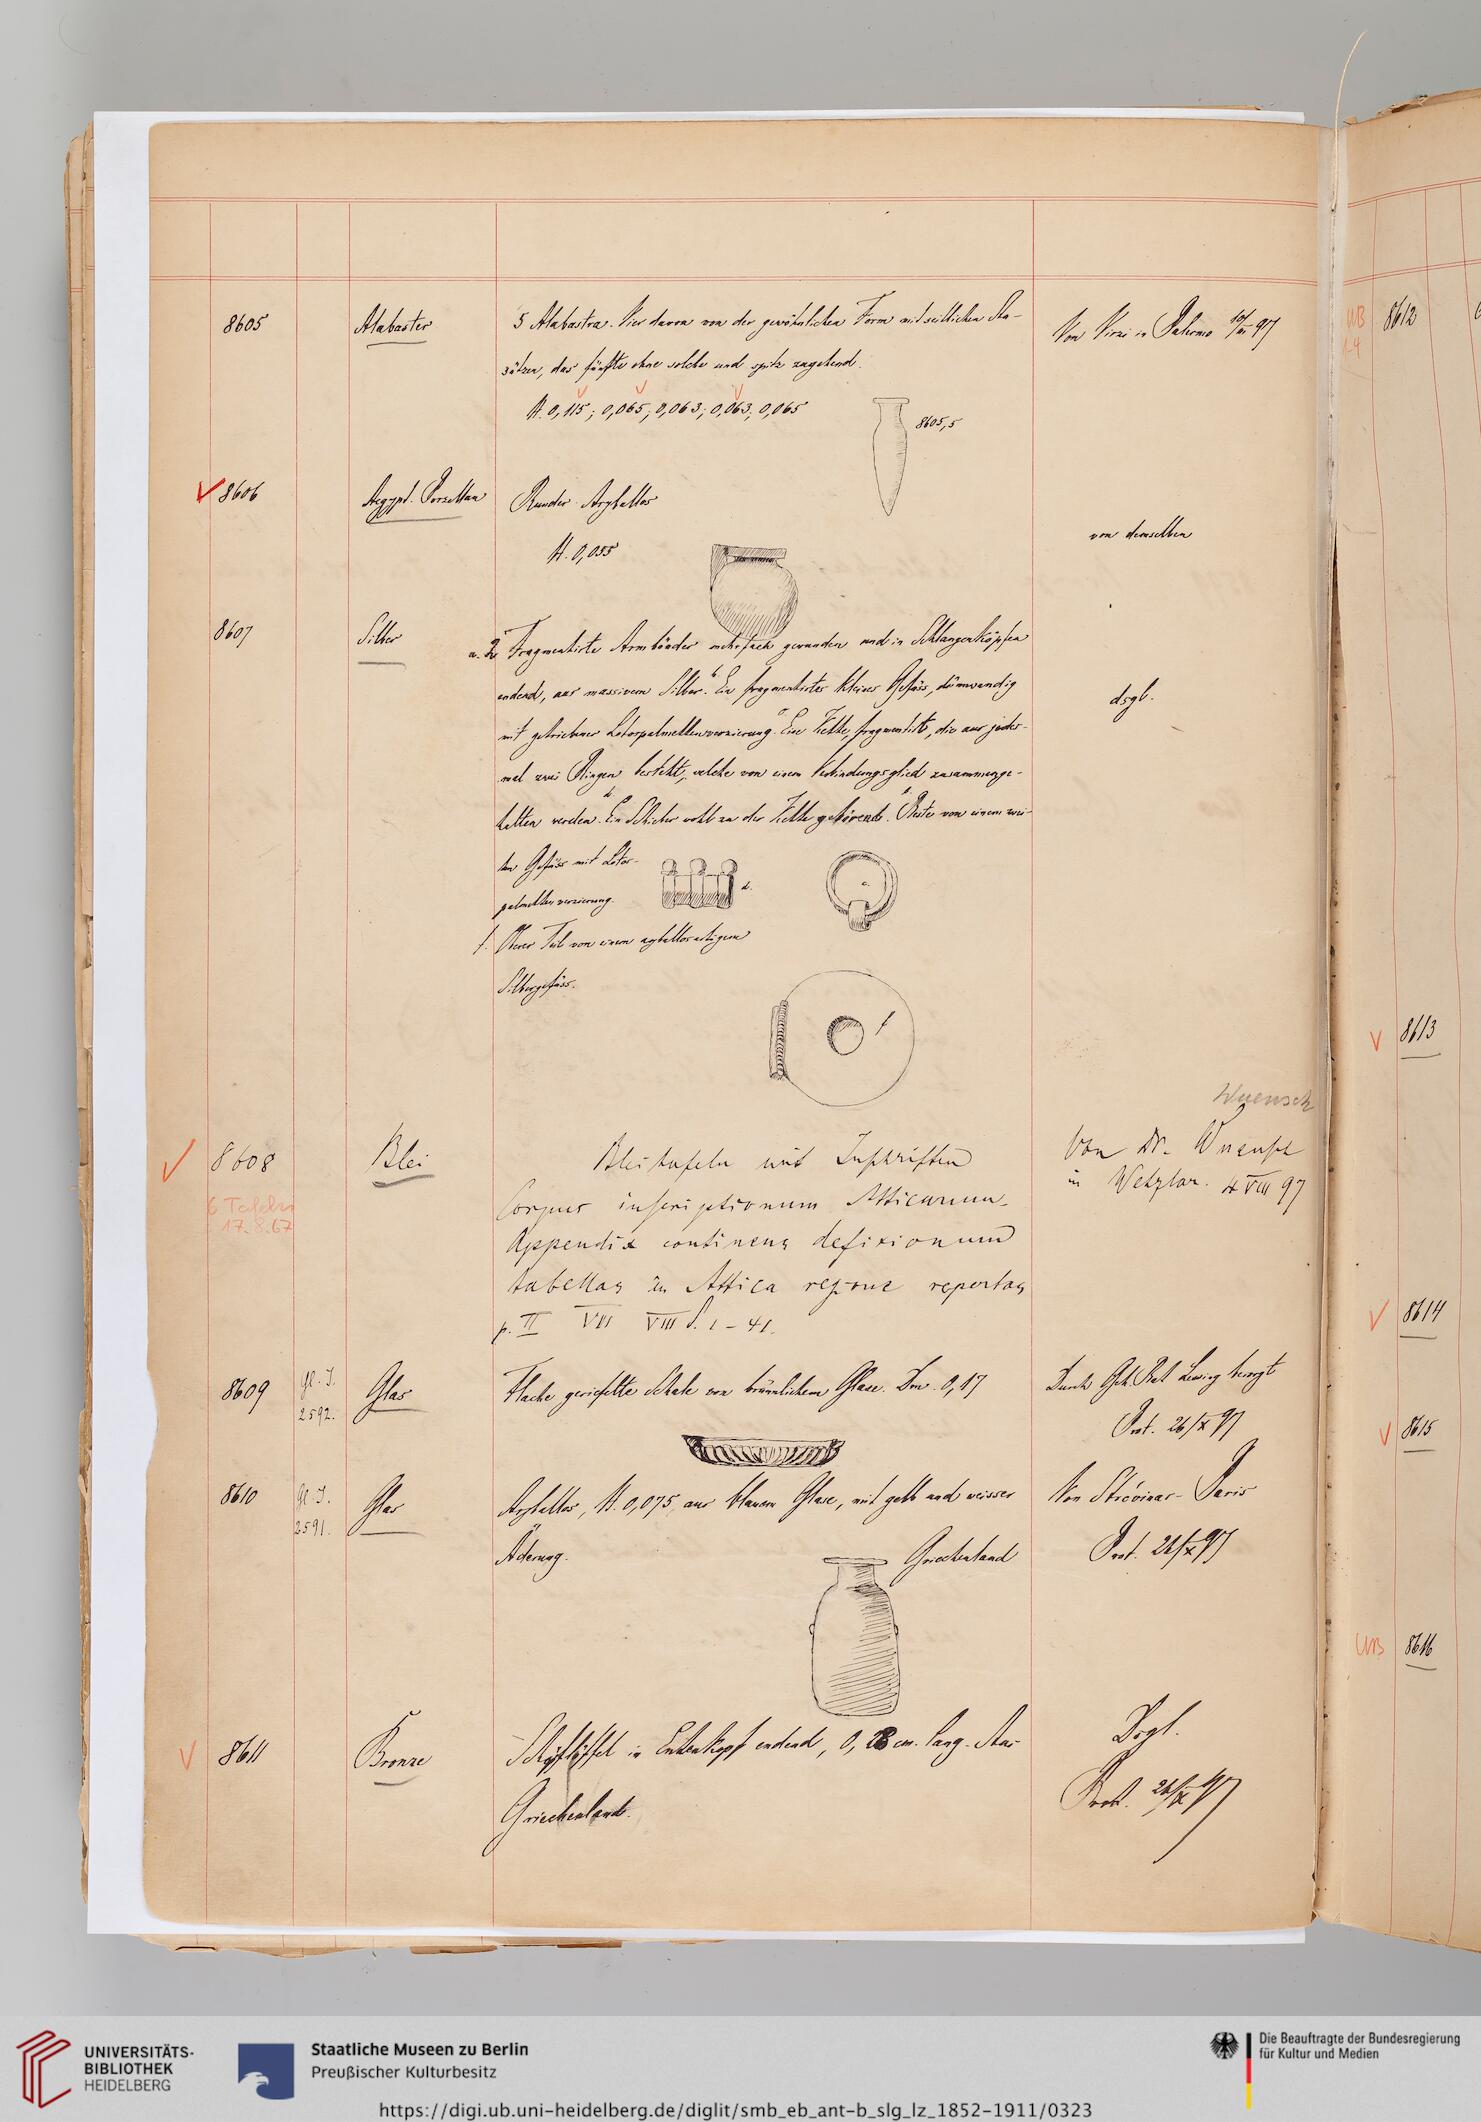 8605 Alabaster 5 Alabastra. Vier davon von der gewöhnlichen Form mit seitlichen An-
sätzen, das fünfte ohne solche und spitz zugehend.
H. 0,115; 0,065; 0,063; 0,063; 0,065
Von Virzi in Palermo 97
8605,5
8606 Aegypt. Porzellan Runder Aryballos
H. 0,055
von demselben
8607 Silber a. 2 Fragmentirte Armbänder mehrfach gewunden und in Schlangenköpfen
endend, aus massivem Silber. b Ein fragmentirtes kleines Gefäss, dünnwandig
dsgl.
mit getriebener Lotospalmettenverzierung. c Eine Kette, fragmentirt, die aus jedes-
mal zwei Ringen besteht, welche von einem Verbindungsglied zusammenge-
halten werden. d Ein Schieber wohl zu der Kette gehörend. Reste von einem zwei-
ten Gefäss mit Lotos-
palmettenverzierung.
d.
c.
f. Oberer Teil von einem aryballosartigem
Silbergefäss.
f
Wuensch
8608 Blei Bleitafeln mit Inschriften
Von Dr. Wuensch
in Wetzlar. 4 VIII 97
6 Tafeln
17.8.67
Corpus inscriptionum Atticarum.
Appendix continens defixionum
tabellas in Attica regione repertas
p. II VII VIII S. 1 – 41.
8609 Gl. I. 2592. Glas Flache geriefelte Schale von bräunlichem Glase. Dm. 0,17
Durch Geh. Rat Lessing besorgt
Prot. 26/X 97
8610 Gl. I. 2591. Glas Aryballos, H. 0,075, aus blauem Glase, mit gelb und weisser
Äderung. Griechenland
Von Stróvinas - Paris
Prot. 26/X 97
8611 Bronze Schöpflöffel in Entenkopf endend, 0,28 cm. lang. Aus
Griechenland.
Dsgl.
Prot. 26/X 97
UB
1-4
8612
8613
8614
8615
UB 8616
UNIVERSITÄTS-
BIBLIOTHEK
HEIDELBERG
Staatliche Museen zu Berlin
Preußischer Kulturbesitz
Die Beauftragte der Bundesregierung
für Kultur und Medien
https://digi.ub.uni-heidelberg.de/diglit/smb_eb_ant-b_slg_lz_1852-1911/0323